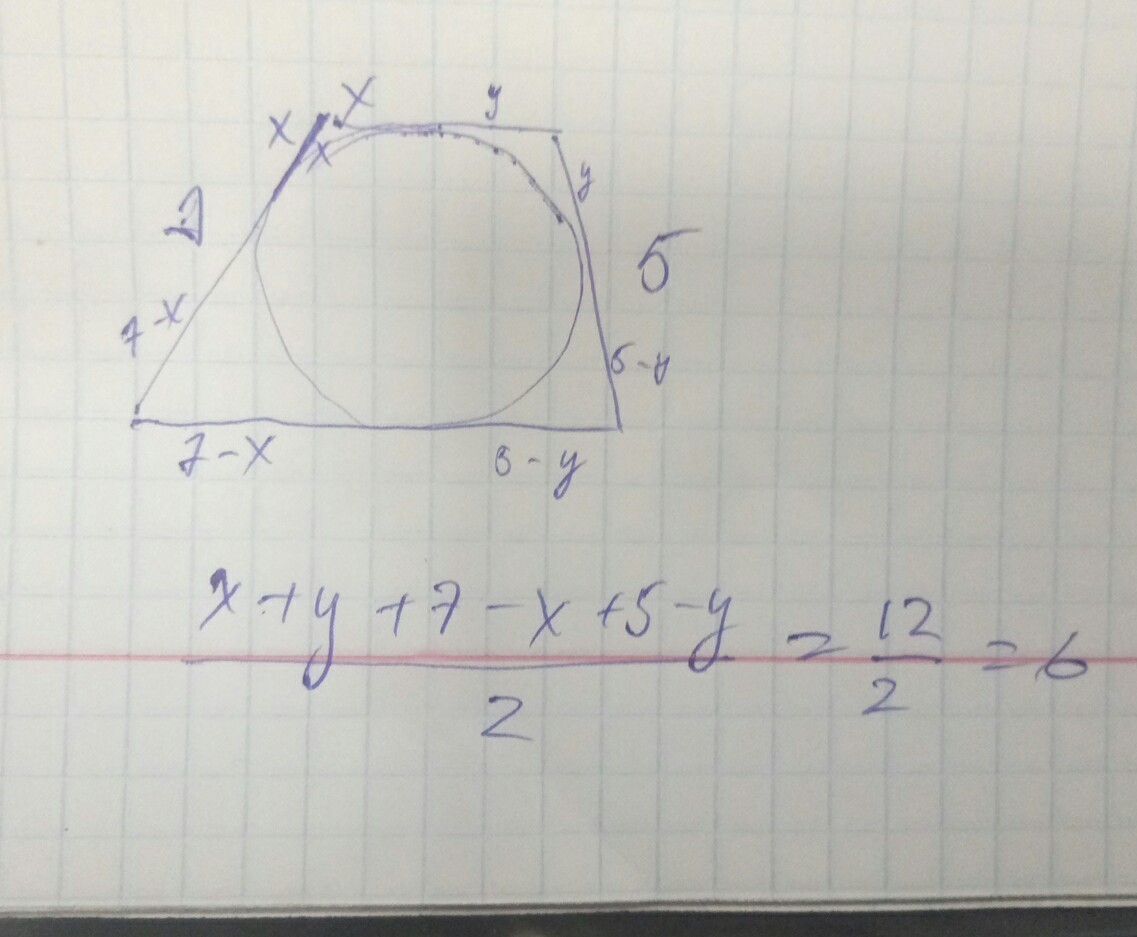 x y
x x
y
7 5
7-x
5-y
7-x 5-y
x+y+7-x+5-y
2
= 12
2
= 6